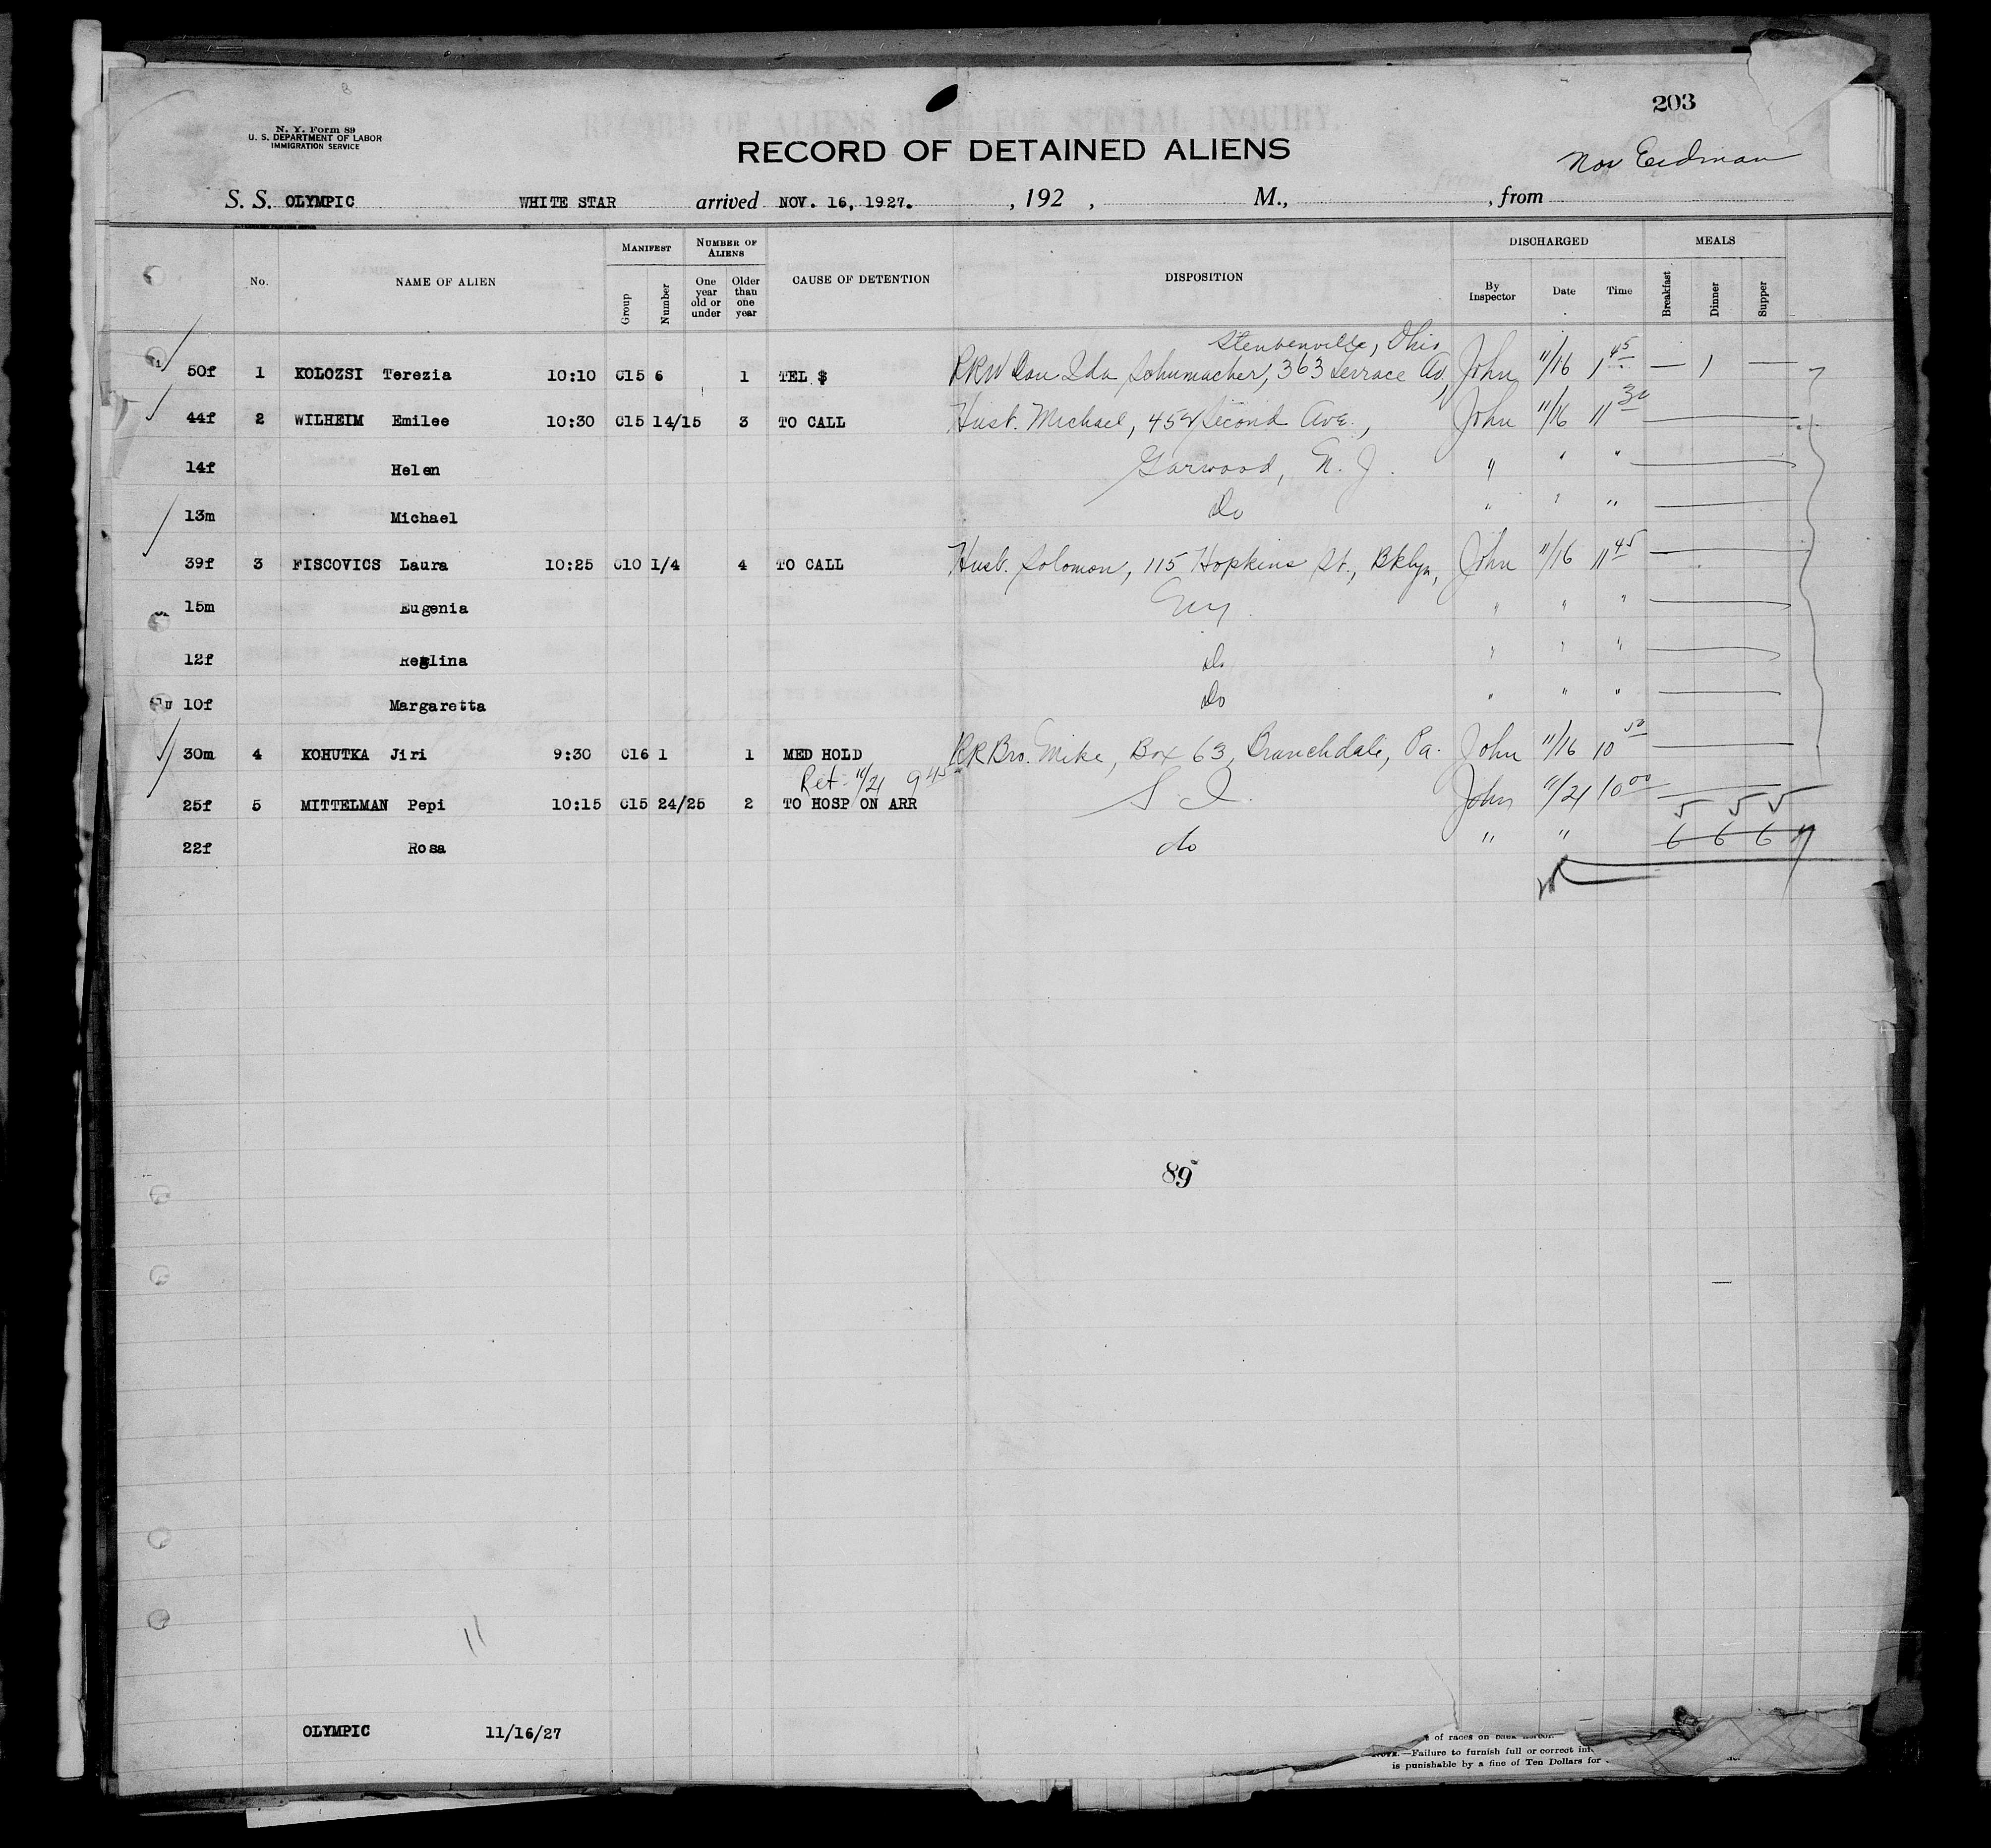 203
N. Y. Form 89
U. S. DEPARTMENT OF LABOR
IMMIGRATION SERVICE
RECORD OF ALIENS HELD FOR SPECIAL INQUIRY.
RECORD OF DETAINED ALIENS
Nov Erdman
S. S. OLYMPIC WHITE STAR arrived NOV. 16, 1927. , 192 , M., , from
No. NAME OF ALIEN MANIFEST Group Number NUMBER OF ALIENS One year old or under Older than one year CAUSE OF DETENTION DISPOSITION DISCHARGED By Inspector Date Time MEALS Breakfast Dinner Supper
Steubenville, Ohio
50f 1 KOLOZSI Terezia 10:10 C15 6 1 TEL $ RRW Dau Ida Schumacher, 363 Terrace Av, John 11/16 1 45 — 1 —
44f 2 WILHEIM Emilee 10:30 C15 14/15 3 TO CALL Husb. Michael, 452 Second Ave., John 11/16 11 30
14f Helen Garwood, N. J. " " "
13m Michael Do " " "
39f 3 FISCOVICS Laura 10:25 C10 1/4 4 TO CALL Husb. Solomon, 115 Hopkins St., Bklyn, John 11/16 11 45
15m Eugenia NY. " " "
12f Reglina Do " " "
10f Margaretta Do " " "
30m 4 KOHUTKA Jiri 9:30 C16 1 1 MED HOLD RR Bro. Mike, Box 63, Branchdale, Pa. John 11/16 10 50
Ret- 11/21 9 45
25f 5 MITTELMAN Pepi 10:15 C15 24/25 2 TO HOSP ON ARR S I. John 11/21 10 00
5 5 5
22f Rosa do " " 6 6 6
89
11
OLYMPIC 11/16/27
of races on back hereof.
NOTE.—Failure to furnish full or correct inf
is punishable by a fine of Ten Dollars for